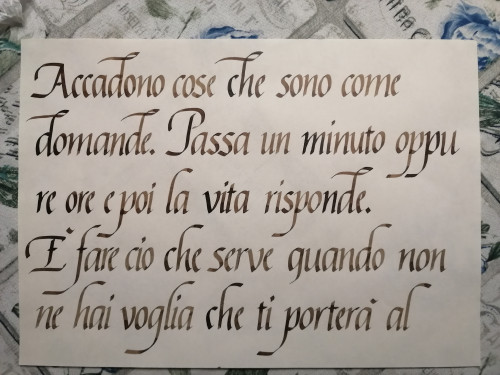 Accadono cose che sono come
domande. Passa un minuto oppu
re ore e poi la vita risponde.
E' fare cio che serve quando non
ne hai voglia che ti porterà al